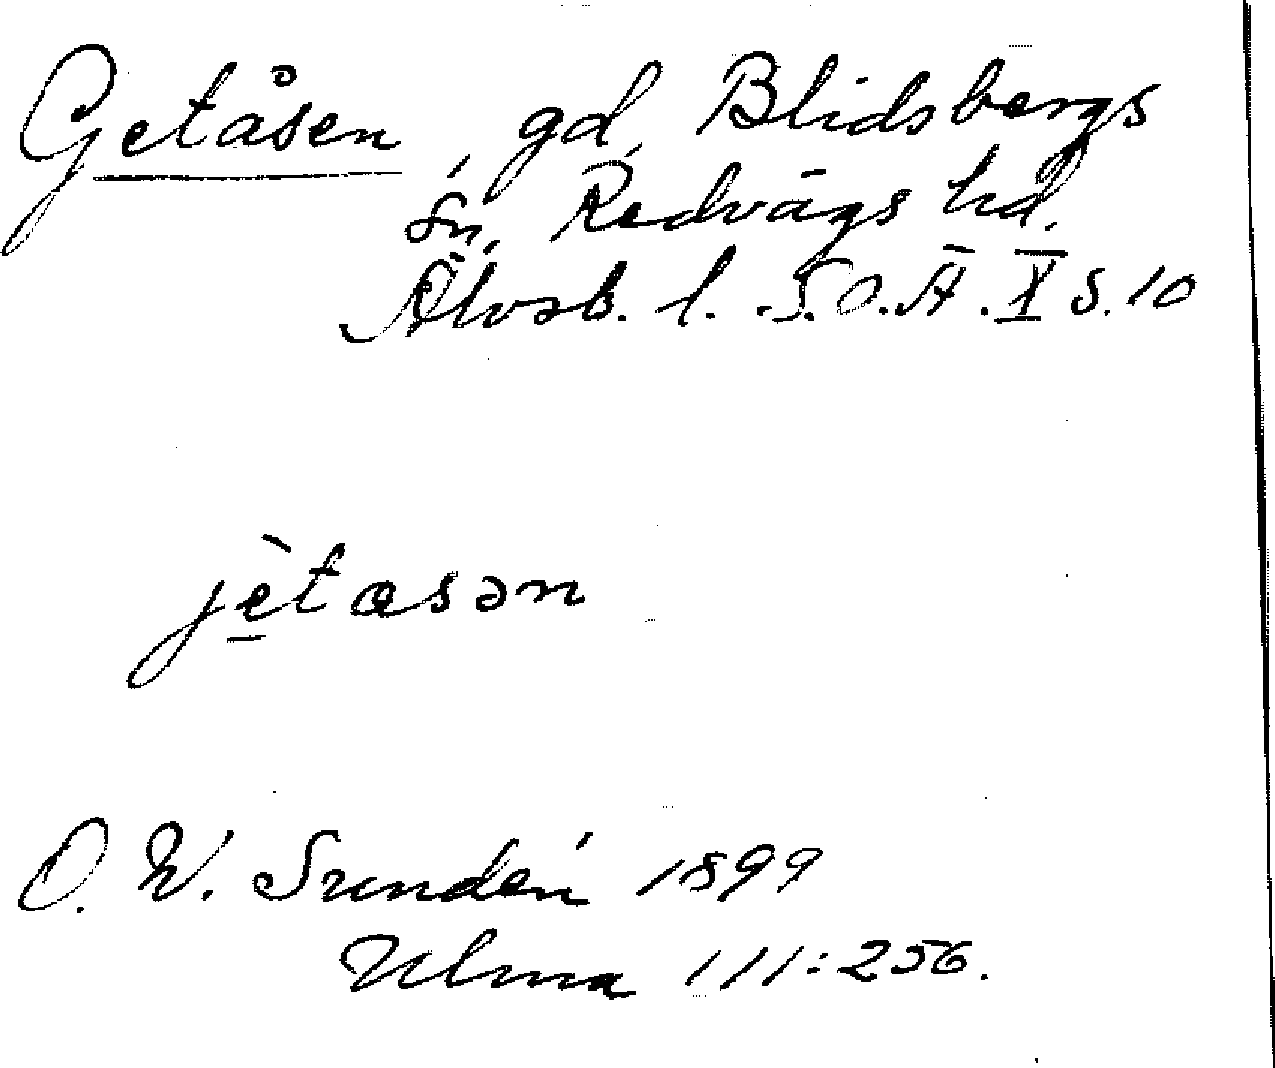 Getåsen, gd, Blidsbergs
sn, Redvägs hd.
Älvsb. l. S.O.Ä. X s. 10
jètasən
O. W. Sundén 1899
Ulma 111:256.